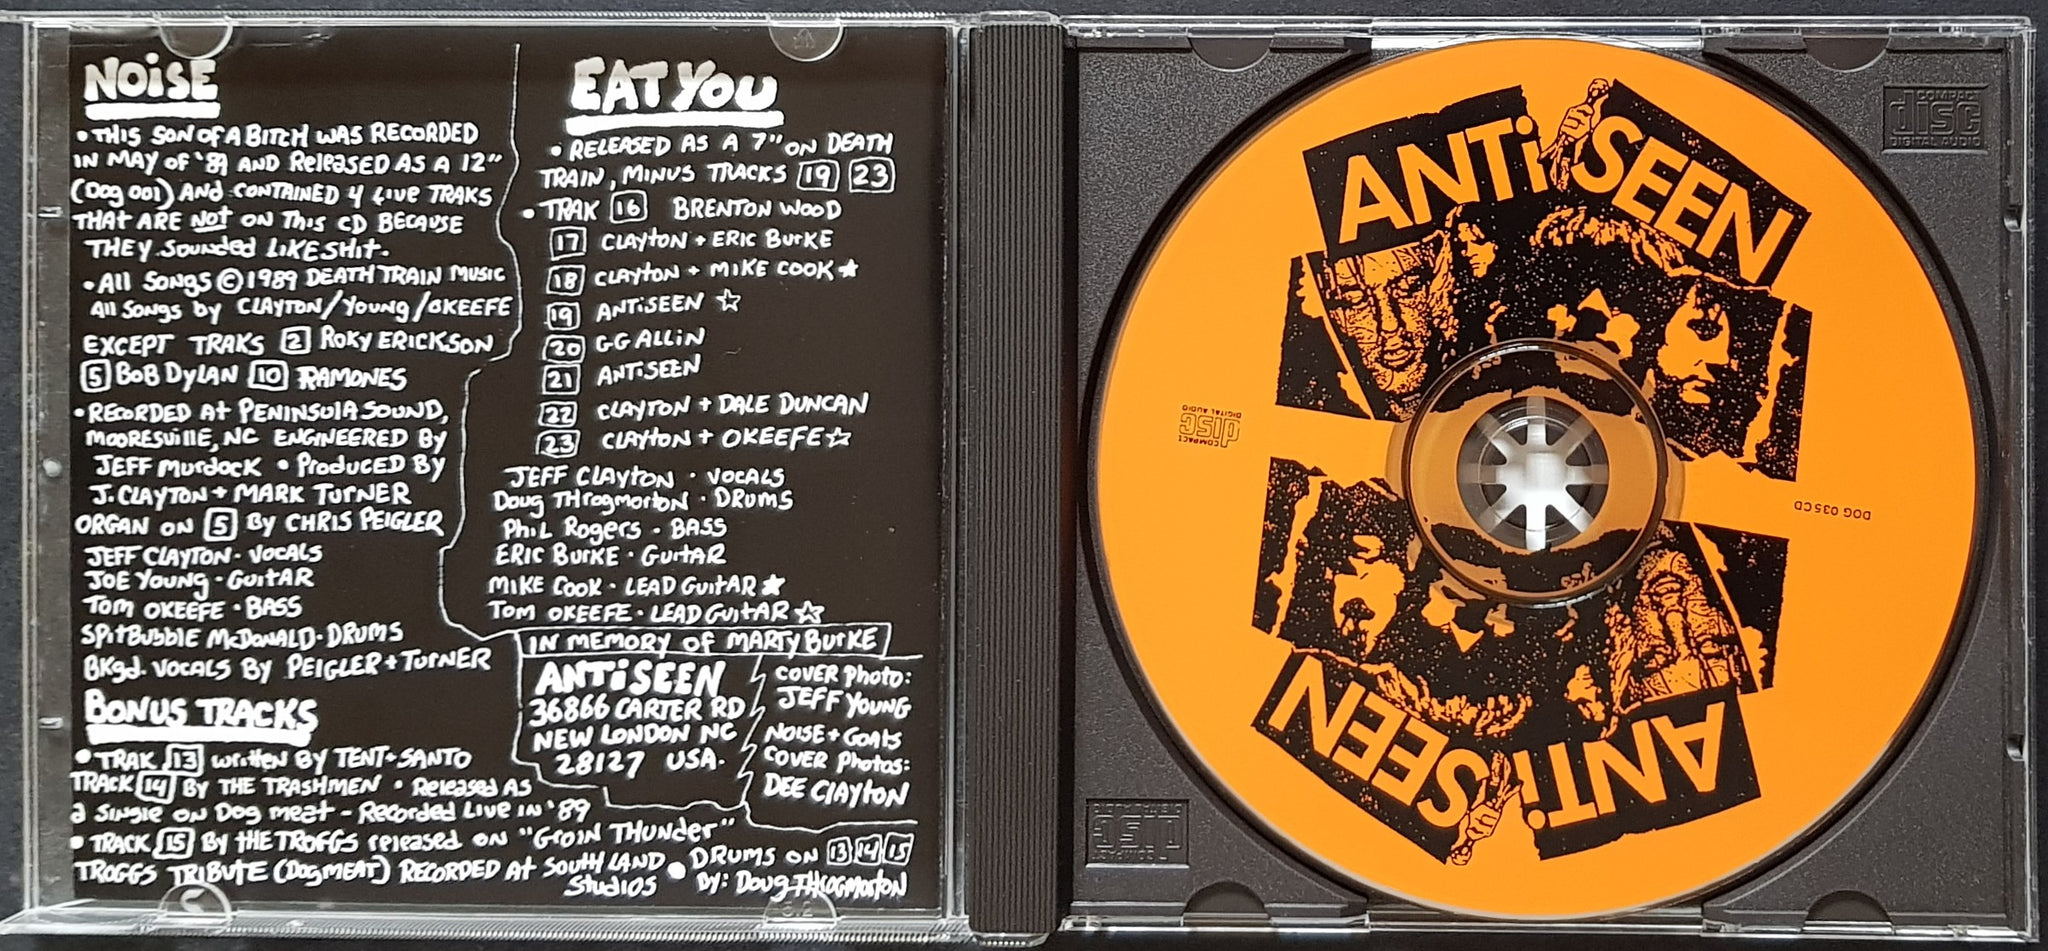 NOISE
• THIS SON OF A BITCH WAS RECORDED
IN MAY OF '89 AND RELEASED AS A 12"
(DOG 001) AND CONTAINED 4 LIVE TRAKS
THAT ARE NOT ON THIS CD BECAUSE
THEY SOUNDED LIKE SHIT.
• ALL SONGS © 1989 DEATH TRAIN MUSIC
ALL SONGS BY CLAYTON/YOUNG/OKEEFE
EXCEPT TRAKS 2 ROKY ERICKSON
5 BOB DYLAN 10 RAMONES
• RECORDED AT PENINSULA SOUND,
MOORESVILLE, NC ENGINEERED BY
JEFF MURDOCK • PRODUCED BY
J. CLAYTON + MARK TURNER
ORGAN ON 5 BY CHRIS PEIGLER
JEFF CLAYTON · VOCALS
JOE YOUNG · GUITAR
TOM OKEEFE · BASS
SPITBUBBLE McDONALD · DRUMS
BKgd. VOCALS BY PEIGLER + TURNER
BONUS TRACKS
• TRAK 13 WRITTEN BY TENT + SANTO
TRACK 14 BY THE TRASHMEN • RELEASED AS
a SINGLE ON DOG MEAT - RECORDED LIVE IN '89
• TRACK 15 BY THE TROGGS RELEASED ON "GROIN THUNDER"
TROGGS TRIBUTE (DOGMEAT) RECORDED AT SOUTHLAND
STUDIOS
• DRUMS ON 13 14 15
BY: DOUG THROGMORTON
EAT YOU
• RELEASED AS A 7" ON DEATH
TRAIN, MINUS TRACKS 19 23
• TRAK 16 BRENTON WOOD
17 CLAYTON + ERIC BURKE
18 CLAYTON + MIKE COOK ★
19 ANTiSEEN ☆
20 GG ALLIN
21 ANTiSEEN
22 CLAYTON + DALE DUNCAN
23 CLAYTON + OKEEFE ☆
JEFF CLAYTON · VOCALS
DOUG THROGMORTON · DRUMS
PHIL ROGERS · BASS
ERIC BURKE · GUITAR
MIKE COOK · LEAD GUITAR ★
TOM OKEEFE · LEAD GUITAR ☆
IN MEMORY OF MARTY BURKE
ANTiSEEN
36866 CARTER RD
NEW LONDON NC
28127 USA.
COVER PHOTO:
JEFF YOUNG
NOISE + GOATS
COVER PHOTOS:
DEE CLAYTON
ANTiSEEN
COMPACT
disc
DIGITAL AUDIO
COMPACT
disc
DIGITAL AUDIO
DOG 035 CD
ANTiSEEN
COMPACT
disc
DIGITAL AUDIO